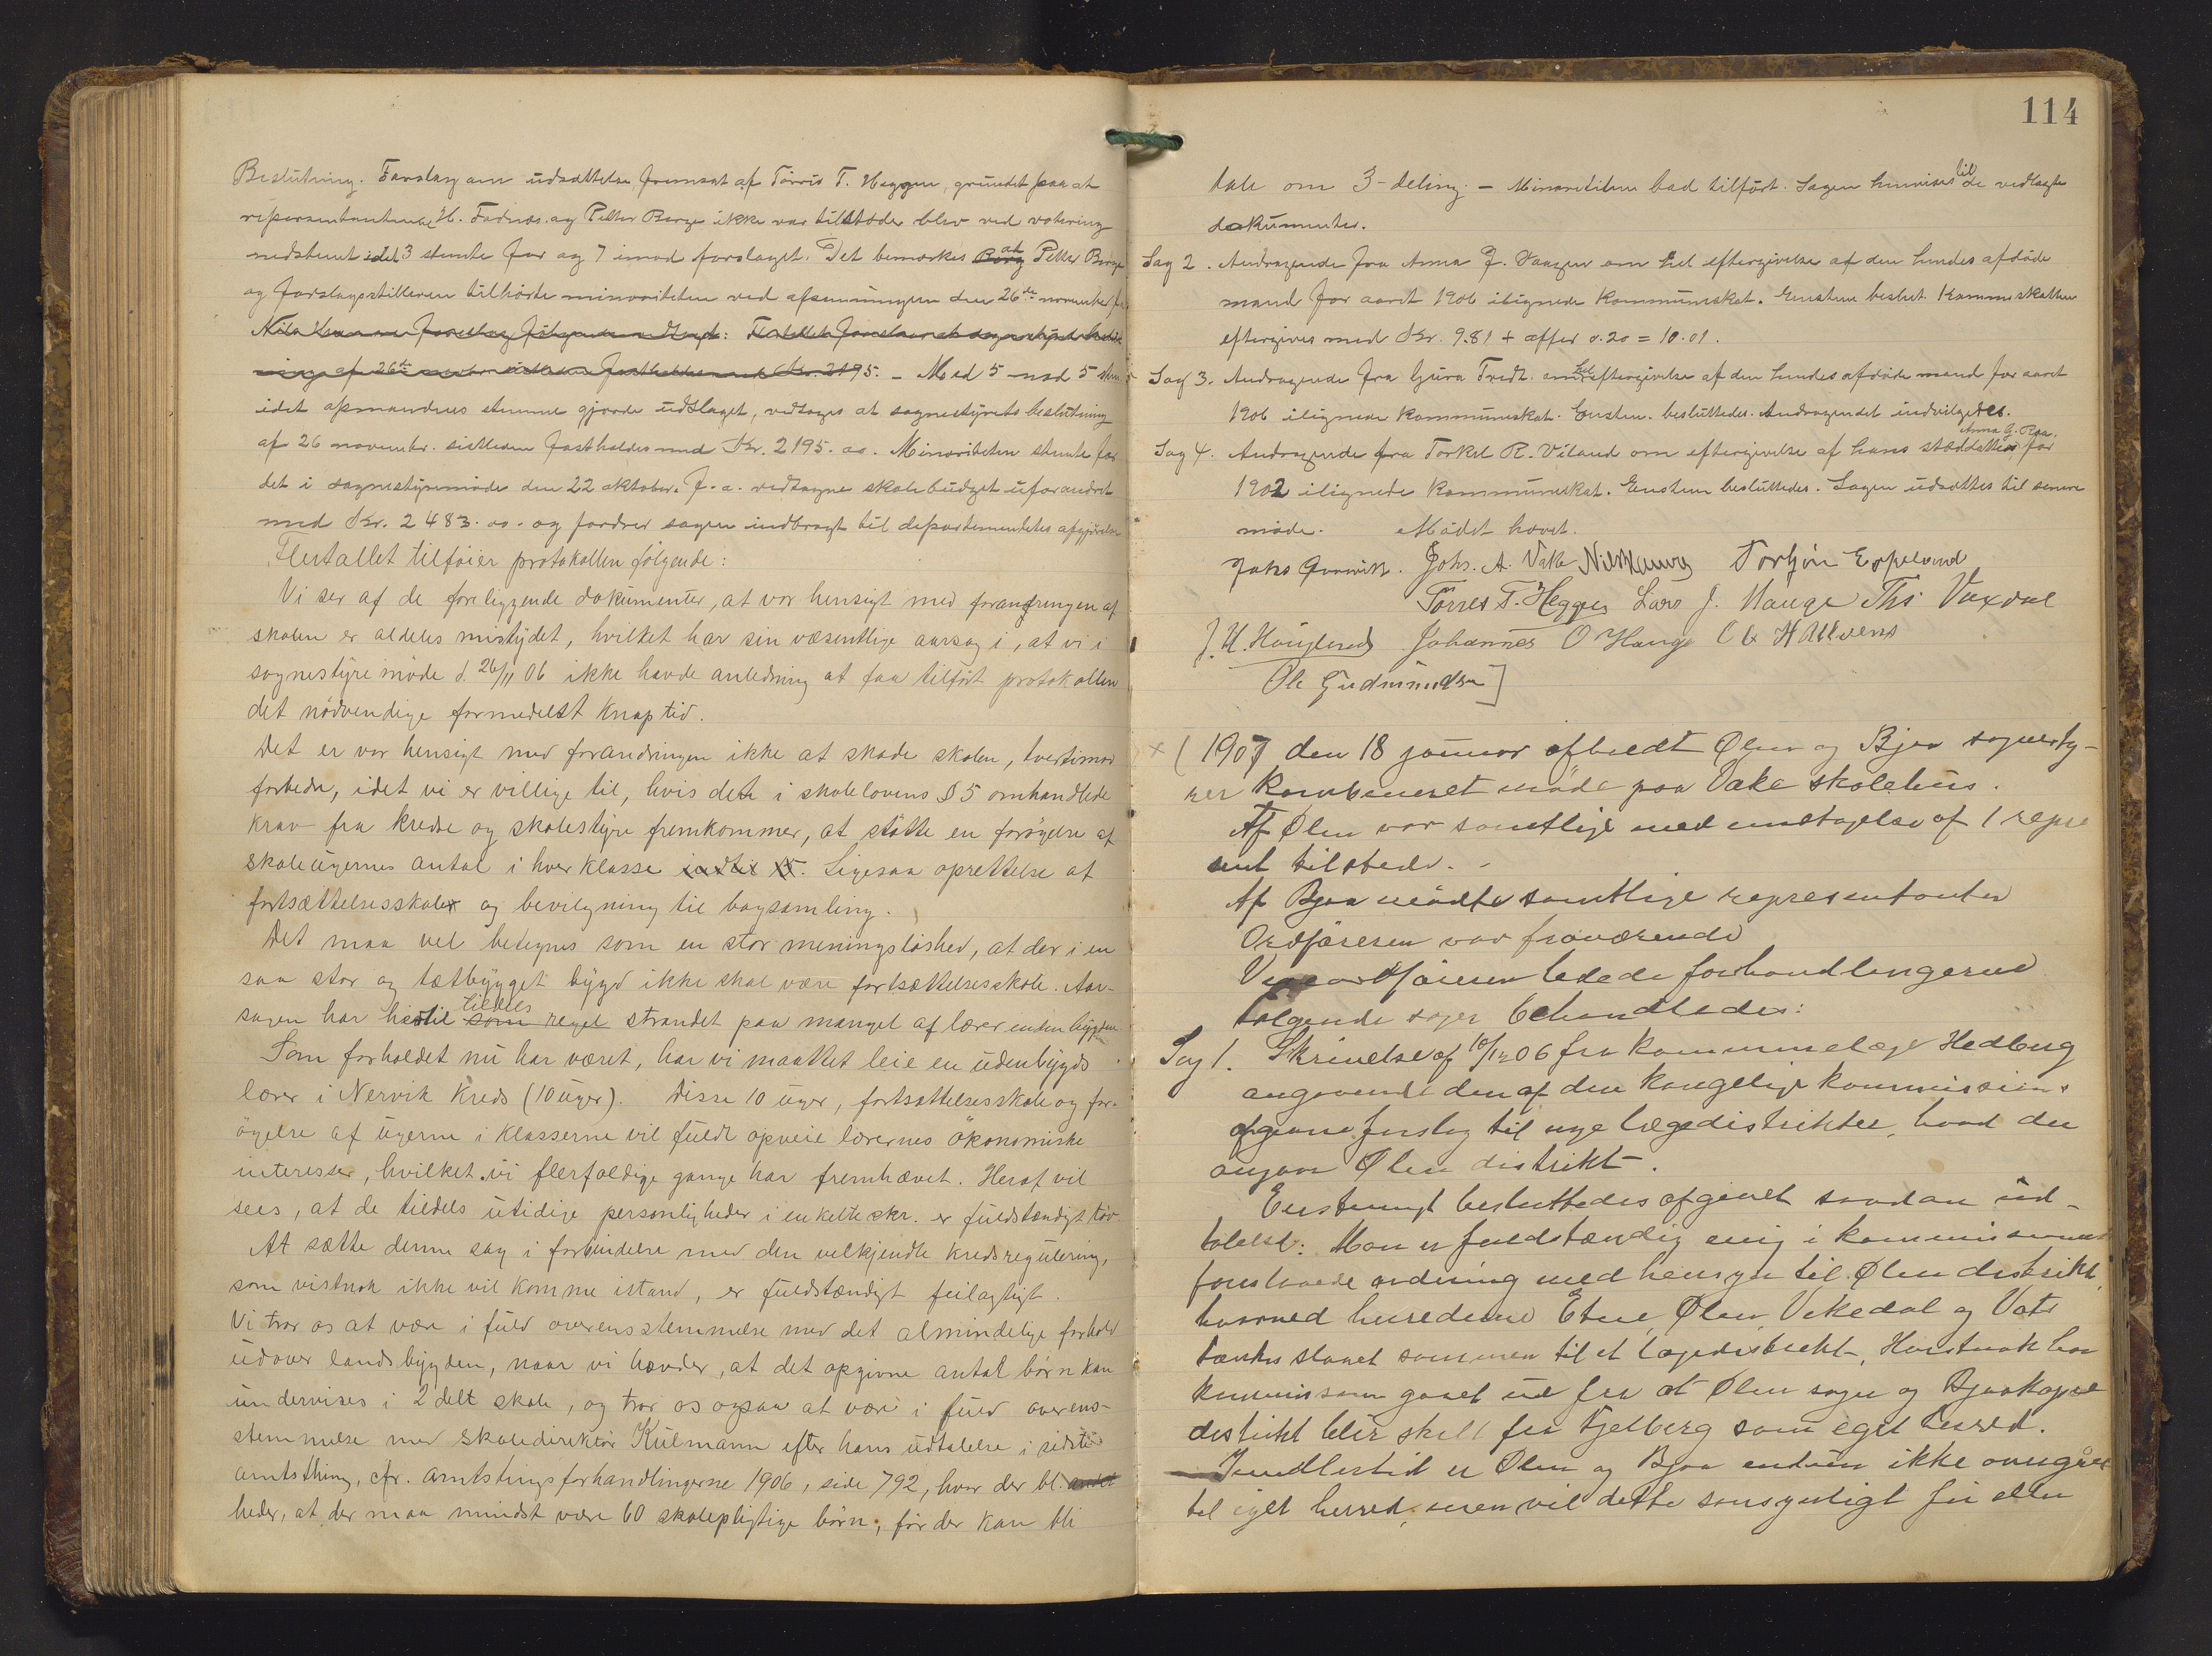 Beslutning. Forslag om udsættelse fremsat af Tørris T. Heggen, grundet paa at
representanterne H. Fadnæs. og Petter Berge ikke var tilstæde blev ved votering
nedstemt idet 3 stemte for og 7 imod forslaget. Det bemærkes at Petter Berge
og forslagsstilleren tilhörte minoriteten ved afstemningen den 26de november
af 26de Kr. 2195. – Med 5 mod 5 stm
idet opmandens stemme gjorde udslaget, vedtages at sognestyrets beslutning
af 26 novembr. sistleden fastholdes med Kr. 2195. oo. Minoriteten stemte for
det i sognestyremøde den 22 oktober. f. a. vedtagne skolebudget uforandret
med Kr. 2483. oo. og fordrer sagen indbragt til departementets afgjörelse
Flertallet tilföier protokollen fölgende:
Vi ser af de foreliggende dokumenter, at vor hensigt med forandringen af
skolen er aldeles mistydet, hvilket har sin væsentlige aarsag i, at vi i
sognestyremöde d. 26/11 06 ikke havde anledning at faa tilfört protokollen
det nödvendige formedelst knap tid.
Det er vor hensigt med forandringen ikke at skade skolen, tvertimod
forbedre, idet vi er villige til, hvis dette i skolelovens § 5 omhandlede
krav fra kredse og skolestyre fremkommer, at stötte en forögelse af
skoleugernes antal i hver klasse indtil 15. Ligesaa oprettelse af
fortsættelsesskoler og bevilgning til bogsamling.
Det maa vel betegnes som en stor meningslöshed, at der i en
saa stor og tætbygget bygd ikke skal være fortsættelsesskole. Aar-
sagen har hertil tildels som regel strandet paa mangel af lærer inden bygden.
Som forholdet nu har været, har vi maattet leie en udenbygds
lærer i Nervik Kreds (10 uger). Disse 10 uger, fortsættelsesskole og for-
ögelse af ugerne i klasserne vil fuldt opveie lærernes ökonomiske
interesser, hvilket vi flerfoldige gange har fremhævet. Heraf vil
sees, at de tildels utidige personligheder i enkelte skr. er fuldstændigt
At sætte denne sag i forbindelse med den velkjendte kredsregulering,
som vistnok ikke vil komme istand, er fuldstændigt feilagtigt.
Vi tror os at være i fuld overensstemmelse med det almindelige forhold
udover landsbygden, naar vi hævder, at det opgivne antal börn kan
undervises i 2 delt skole, og tror os ogsaa at være i fuld overens-
stemmelse med skoledirektör Kulmann efter hans udtalelse i sidste
amtsthing, cfr. amtstingsforhandlingerne 1906, side 792, hvor der bl. andet
heder, at der maa mindst være 60 skolepligtige börn, för der kan bli
114
tale om 3-deling. – Minoriteten bad tilfört. Sagen henvises til de vedlagte
dokumenter.
Sag 2. Andragende fra Anna J. Vaagen om hel eftergivelse af den hendes afdöde
mand for aaret 1906 ilignede kommuneskat. Enstem beslut. Kommeskatten
eftergives med Kr. 9.81 + offer 0.20 = 10.01.
Sag 3. Andragende fra Gura Tredt. om hel eftergivelse af den hendes afdöde mand for aaret
1906 ilignede kommuneskat. Enstem. besluttedes. Andragendet indvilgedes.
Anna G. Raa.
Sag 4. Andragende fra Torkel R. Viland om eftergivelse af hans steddatter for
1902 ilignede kommuneskat. Enstem besluttedes. Sagen udsættes til senere
möde. Mödet hævet.
Johs. A. Vake Torbjörn Espeland
Törres T. Hegger Lars J. Hauge Ths Vaxdal
Johannes O Hauge
Ole Gudmundsen
x (1907 den 18 januar afholdt Ølen og Bjoa sognesty-
rer kombineret möde paa Vaka skolehus.
Af Ølen var samtlige med undtagelse af 1 repre
sent tilstede. –
Af Bjoa mödte samtlige representanter
Ordföreren var fraværende
Viceordföreren ledede forhandlingerne
Fölgende sager behandledes:
Sag 1. Skrivelse af 10/12 06 fra kommunelæge Hedberg
angaaende den af den kongelige kommission
afgivne forslag til nye lægedistrikter, hvad der
angaar Ølen distrikt.
Enstemigt besluttedes afgivet saadan ud-
talelse: Man er fuldstændig enig i kommissionens
foreslaaede ordning med hensyn til Ølen distrikt,
hvorved herrederne Etne, Ølen, Vikedal og Vats
tænkes slaaet sammen til et lægedistrikt, Herstnok har
kommissionen gaaet ud fra at Ølen sogn og Bjoakapel
distrikt blir skilt fra Fjelberg som eget herred.
– Imidlertid er Ølen og Bjoa endnu ikke overgaaet
til eget herred, men vil dette sansynligt för eller